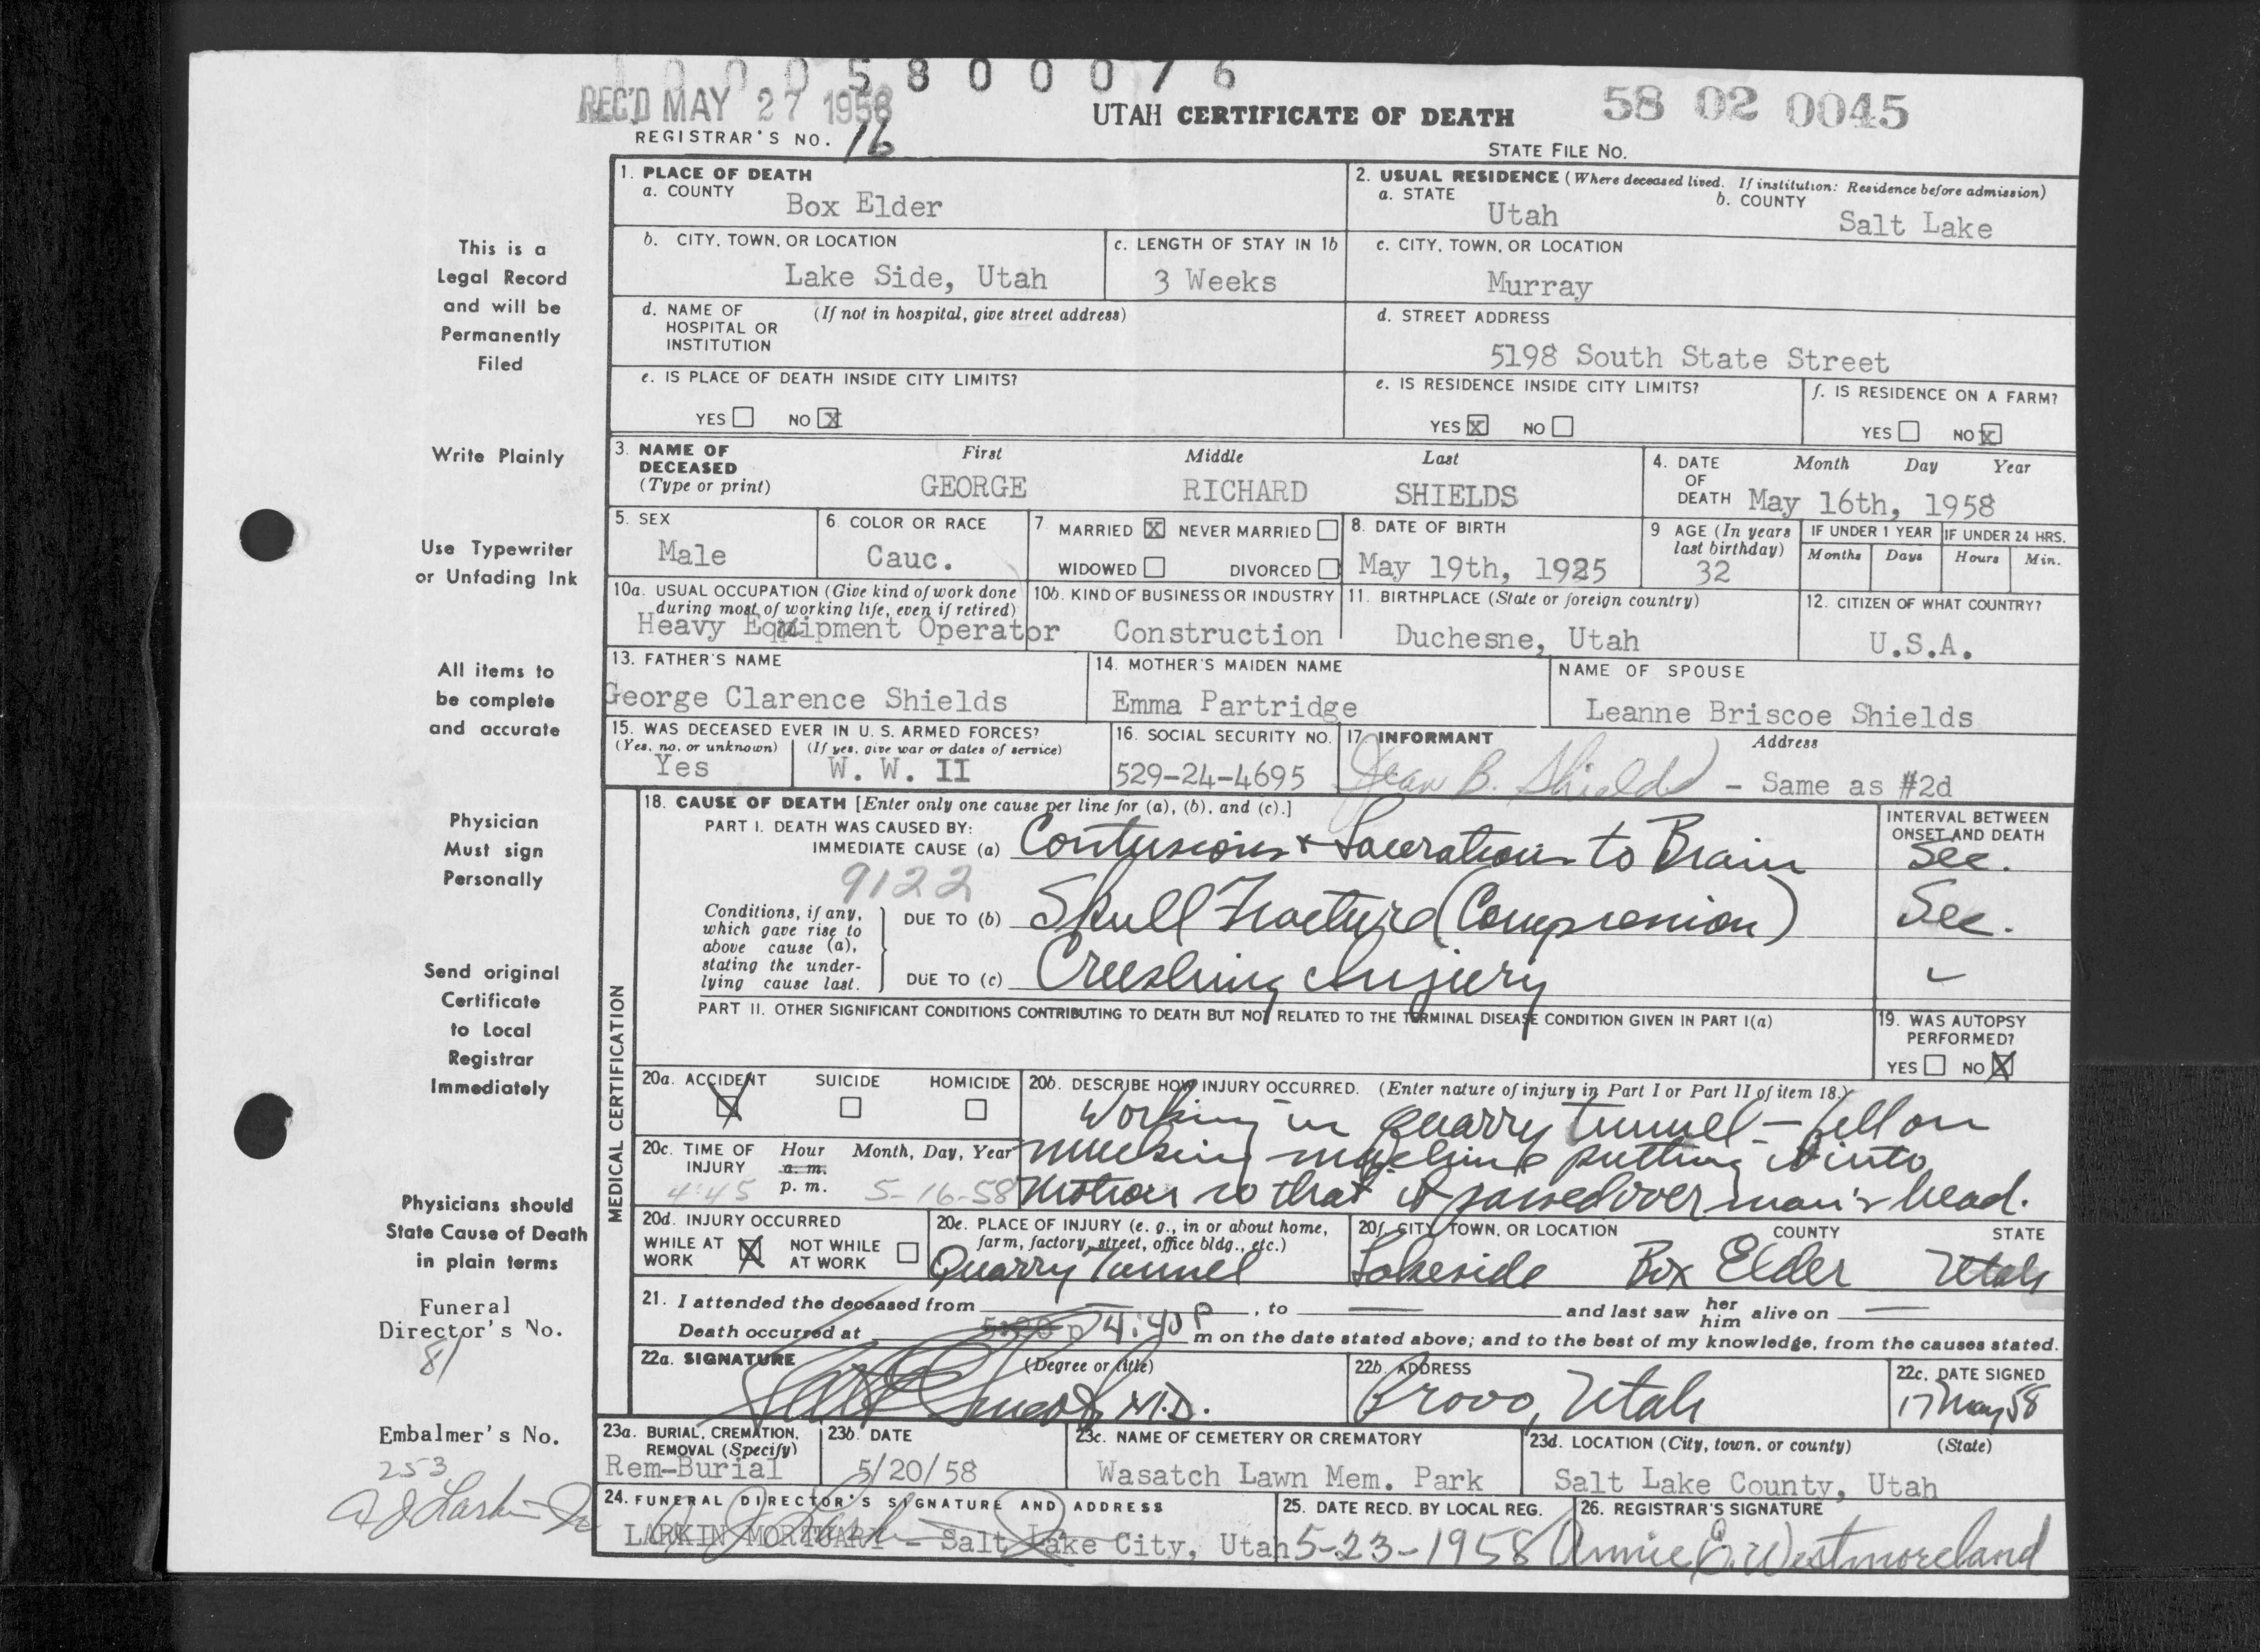 1 0 0 0 5 8 0 0 0 7 6
REC'D MAY 27 1958
UTAH CERTIFICATE OF DEATH
58 02 0045
REGISTRAR'S NO. 16
STATE FILE NO.
1. PLACE OF DEATH
a. COUNTY
Box Elder
2. USUAL RESIDENCE (Where deceased lived. If institution: Residence before admission)
a. STATE
Utah
b. COUNTY
Salt Lake
b. CITY, TOWN, OR LOCATION
Lake Side, Utah
c. LENGTH OF STAY IN 1b
3 Weeks
c. CITY, TOWN, OR LOCATION
Murray
d. NAME OF HOSPITAL OR INSTITUTION
(If not in hospital, give street address)
d. STREET ADDRESS
5198 South State Street
e. IS PLACE OF DEATH INSIDE CITY LIMITS?
YES NO X
e. IS RESIDENCE INSIDE CITY LIMITS?
YES X NO
f. IS RESIDENCE ON A FARM?
YES NO X
3. NAME OF DECEASED
(Type or print)
First Middle Last
GEORGE RICHARD SHIELDS
4. DATE OF DEATH
Month Day Year
May 16th, 1958
5. SEX
Male
6. COLOR OR RACE
Cauc.
7. MARRIED X NEVER MARRIED
WIDOWED DIVORCED
8. DATE OF BIRTH
May 19th, 1925
9 AGE (In years last birthday)
32
IF UNDER 1 YEAR
Months Days
IF UNDER 24 HRS.
Hours Min.
10a. USUAL OCCUPATION (Give kind of work done during most of working life, even if retired)
Heavy Equipment Operator
10b. KIND OF BUSINESS OR INDUSTRY
Construction
11. BIRTHPLACE (State or foreign country)
Duchesne, Utah
12. CITIZEN OF WHAT COUNTRY?
U.S.A.
13. FATHER'S NAME
George Clarence Shields
14. MOTHER'S MAIDEN NAME
Emma Partridge
NAME OF SPOUSE
Leanne Briscoe Shields
15. WAS DECEASED EVER IN U. S. ARMED FORCES?
(Yes, no, or unknown) (If yes, give war or dates of service)
Yes W. W. II
16. SOCIAL SECURITY NO.
529-24-4695
17. INFORMANT Address
Jean B. Shields - Same as #2d
18. CAUSE OF DEATH [Enter only one cause per line for (a), (b), and (c).]
PART I. DEATH WAS CAUSED BY:
IMMEDIATE CAUSE (a) Contusions + Lacerations to Brain
9122
INTERVAL BETWEEN ONSET AND DEATH
Sec.
Conditions, if any, which gave rise to above cause (a), stating the underlying cause last.
DUE TO (b) Skull Fracture (Compression)
Sec.
DUE TO (c) Crushing Injury
PART II. OTHER SIGNIFICANT CONDITIONS CONTRIBUTING TO DEATH BUT NOT RELATED TO THE TERMINAL DISEASE CONDITION GIVEN IN PART I(a)
19. WAS AUTOPSY PERFORMED?
YES NO X
20a. ACCIDENT X SUICIDE HOMICIDE
20b. DESCRIBE HOW INJURY OCCURRED. (Enter nature of injury in Part I or Part II of item 18.)
Working in quarry tunnel - fell on
mucking machine putting it into
motion so that it passed over man's head.
20c. TIME OF INJURY
Hour Month, Day, Year
a. m.
4:45 p. m. 5-16-58
20d. INJURY OCCURRED
WHILE AT WORK X NOT WHILE AT WORK
20e. PLACE OF INJURY (e. g., in or about home, farm, factory, street, office bldg., etc.)
Quarry Tunnel
20f. CITY, TOWN, OR LOCATION COUNTY STATE
Lakeside Box Elder Utah
21. I attended the deceased from , to and last saw her him alive on
Death occurred at 5:00 p 4:40 P m on the date stated above; and to the best of my knowledge, from the causes stated.
22a. SIGNATURE (Degree or title)
M.D.
22b. ADDRESS
Provo, Utah
22c. DATE SIGNED
17 May 58
23a. BURIAL, CREMATION, REMOVAL (Specify)
Rem-Burial
23b. DATE
5/20/58
23c. NAME OF CEMETERY OR CREMATORY
Wasatch Lawn Mem. Park
23d. LOCATION (City, town, or county) (State)
Salt Lake County, Utah
24. FUNERAL DIRECTOR'S SIGNATURE AND ADDRESS
LARKIN MORTUARY - Salt Lake City, Utah
25. DATE RECD. BY LOCAL REG.
5-23-1958
26. REGISTRAR'S SIGNATURE
Annie E. Westmoreland
MEDICAL CERTIFICATION
This is a
Legal Record
and will be
Permanently
Filed
Write Plainly
Use Typewriter
or Unfading Ink
All items to
be complete
and accurate
Physician
Must sign
Personally
Send original
Certificate
to Local
Registrar
Immediately
Physicians should
State Cause of Death
in plain terms
Funeral
Director's No.
81
Embalmer's No.
253
A J Larkin Jr